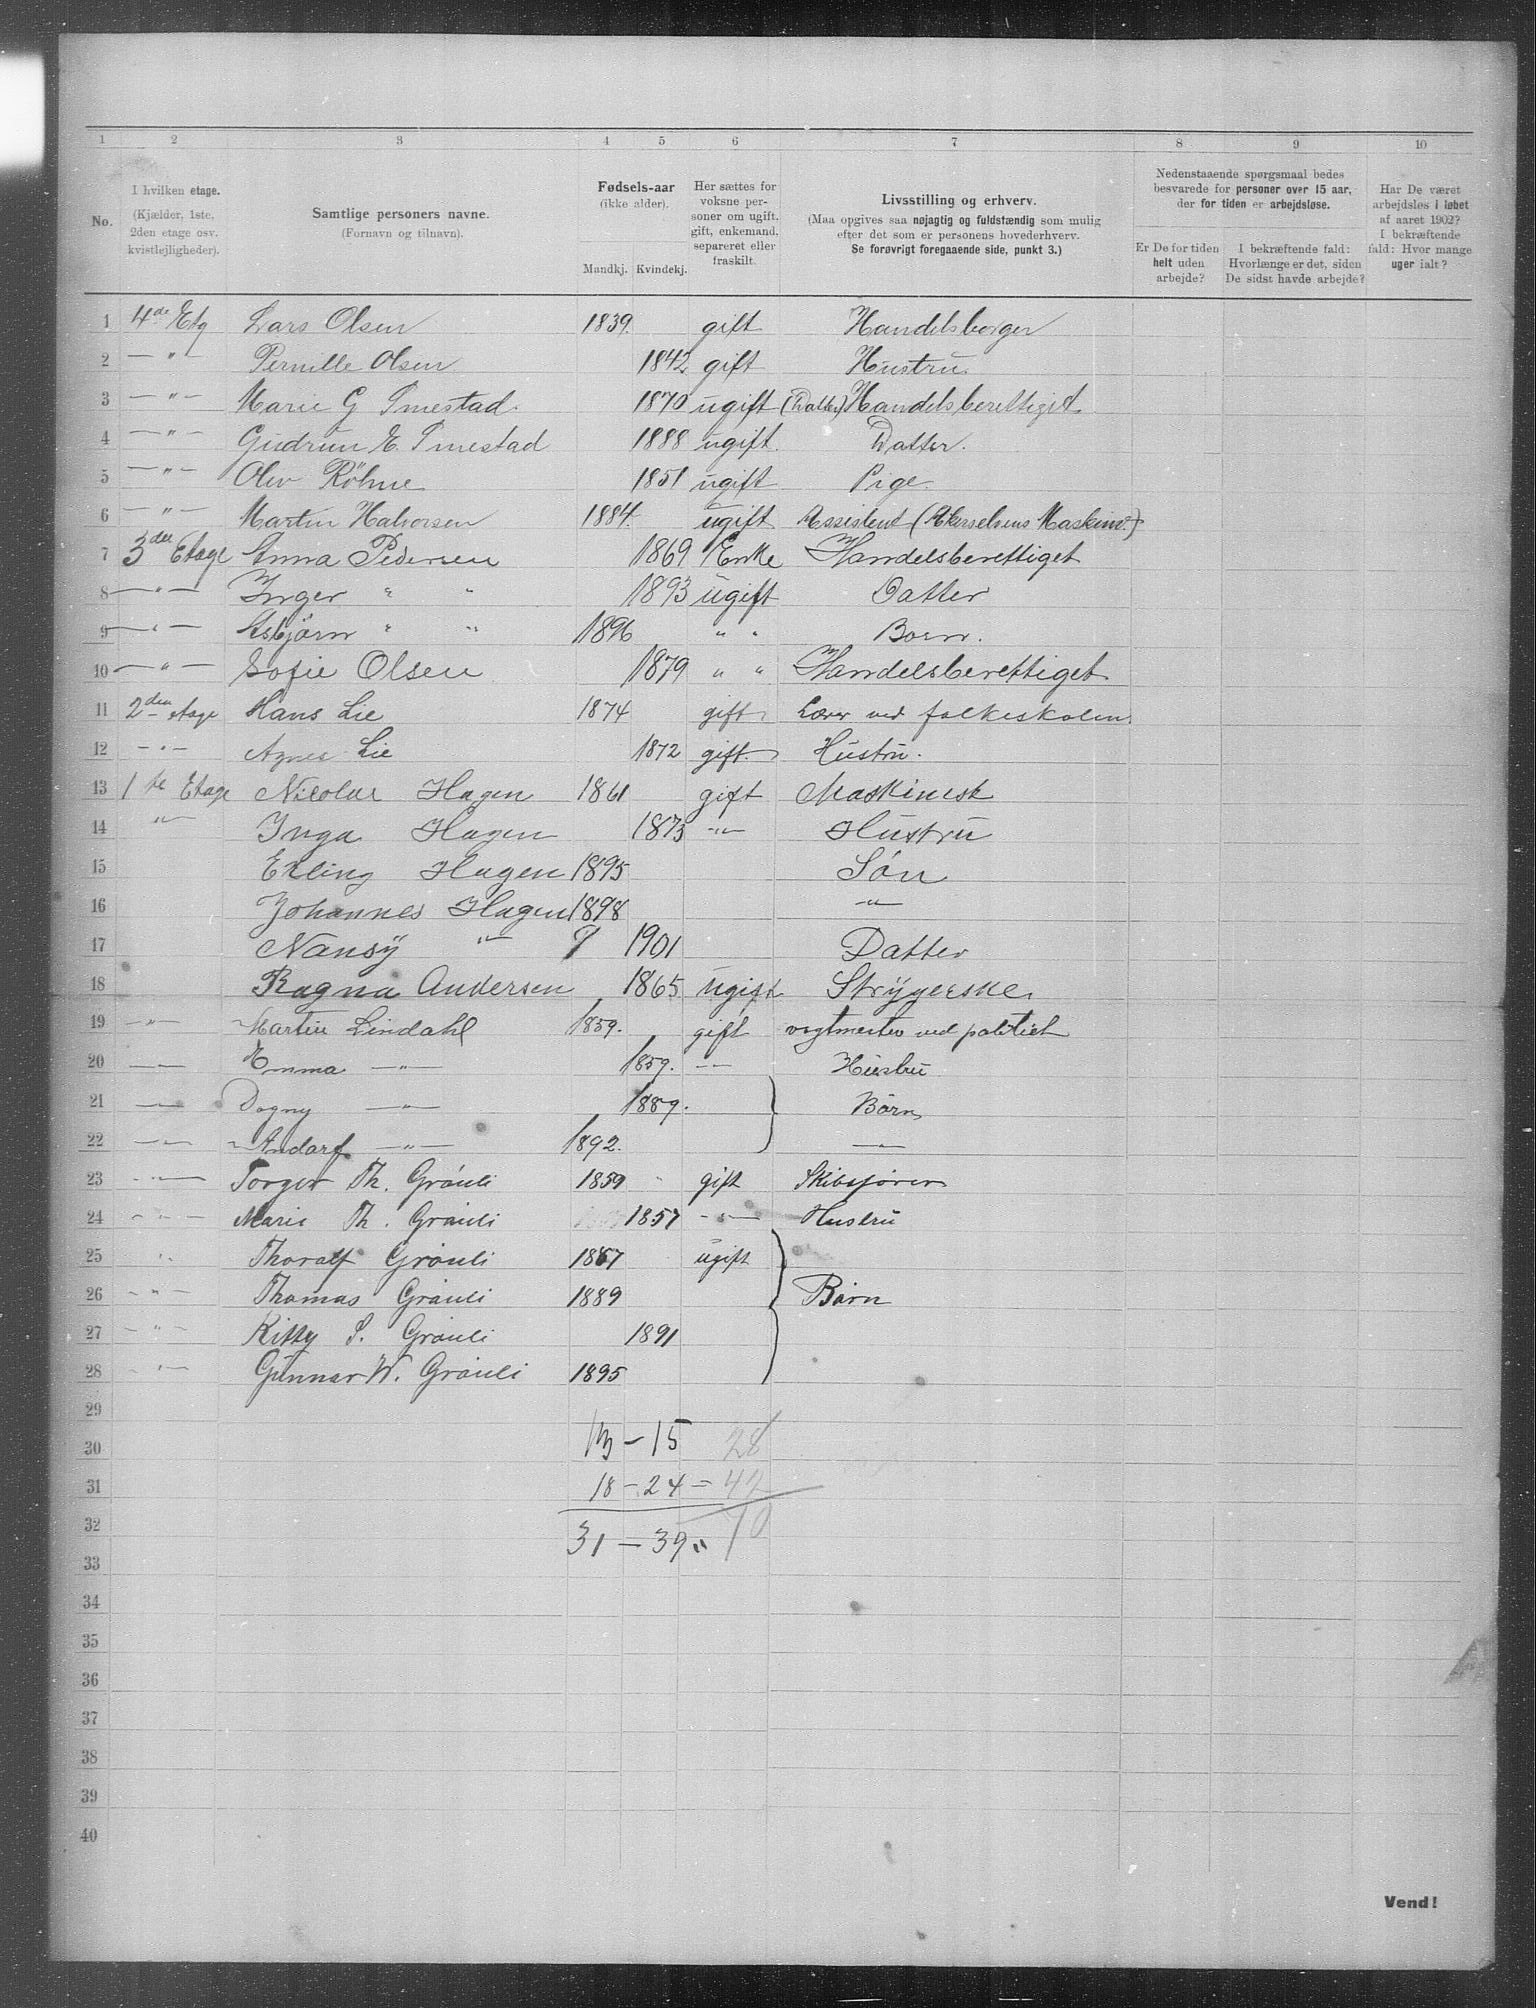 1 2 3 4 5 6 7 8 9 10
No.
I hvilken etage.
(Kjælder, 1ste,
2den etage osv.
kvistlejligheder).
Samtlige personers navne.
(Fornavn og tilnavn).
Fødsels-aar
(ikke alder).
Mandkj. Kvindekj.
Her sættes for
voksne per-
soner om ugift,
gift, enkemand,
separeret eller
fraskilt.
Livsstilling og erhverv.
(Maa opgives saa nøjagtig og fuldstændig som mulig
efter det som er personens hovederhverv.
Se forøvrigt foregaaende side, punkt 3.)
Nedenstaaende spørgsmaal bedes
besvarede for personer over 15 aar,
der for tiden er arbejdsløse.
Er De for tiden
helt uden
arbejde?
I bekræftende fald:
Hvorlænge er det, siden
De sidst havde arbejde?
Har De været
arbejdsløs i løbet
af aaret 1902?
I bekræftende
fald: Hvor mange
uger ialt?
1 4de Etg Lars Olsen 1839. gift Handelsborger
2 — " — Pernille Olsen 1842 gift Hustru
3 — " — Marie G Smestad. 1870 ugift (Datter) Handelsberettiget
4 — " — Gudrun E. Smestad 1888 ugift. Datter.
5 — " — Olev Röhne 1851 ugift Pige.
6 — " — Martin Halvorsen 1884. ugift Assistent (Akerselvens Maskinv.)
7 3die Etage Anna Pedersen 1869 Enke Handelsberettiget
8 — " — Inger " " 1893 ugift Datter
9 — " — Asbjørn " " 1896 " " Barn.
10 — " — Sofie Olsen 1879 " " Handelsberettiget
11 2den etage Hans Lie 1874 gift Lærer ved folkeskolen.
12 — " — Agnes Lie 1872 gift. Hustru.
13 1ste Etage Nicolai Hagen 1861 gift Maskinist
14 — " — Inga Hagen 1873 — " — Hustru
15 Erling Hagen 1895 Søn
16 Johannes Hagen 1898 — " —
17 Nansÿ — " — 1901 Datter
18 Ragna Andersen 1865 ugift Strÿgerske.
19 — " — Martin Lindahl 1859. gift vagtmester ved politiet
20 — " — Emma — " — 1859. — " — Hustru
21 — " — Dagny — " — 1889. Børn
22 — " — Andorf — " — 1892. — " —
23 — " — Torger Th. Gråuli 1859 gift Skibsfører
24 — " — Marie Th. Gråuli 1857 — " — Hustru
25 " Thoralf Gråuli 1887 ugift
26 — " — Thomas Gråuli 1889 Børn
27 — " — Kitty S. Gråuli 1891
28 — " — Gunnar W. Gråuli 1895
29
30 13 — 15 28
31 18 — 24 = 42
32 31 — 39 " 70
33
34
35
36
37
38
39
40
Vend!